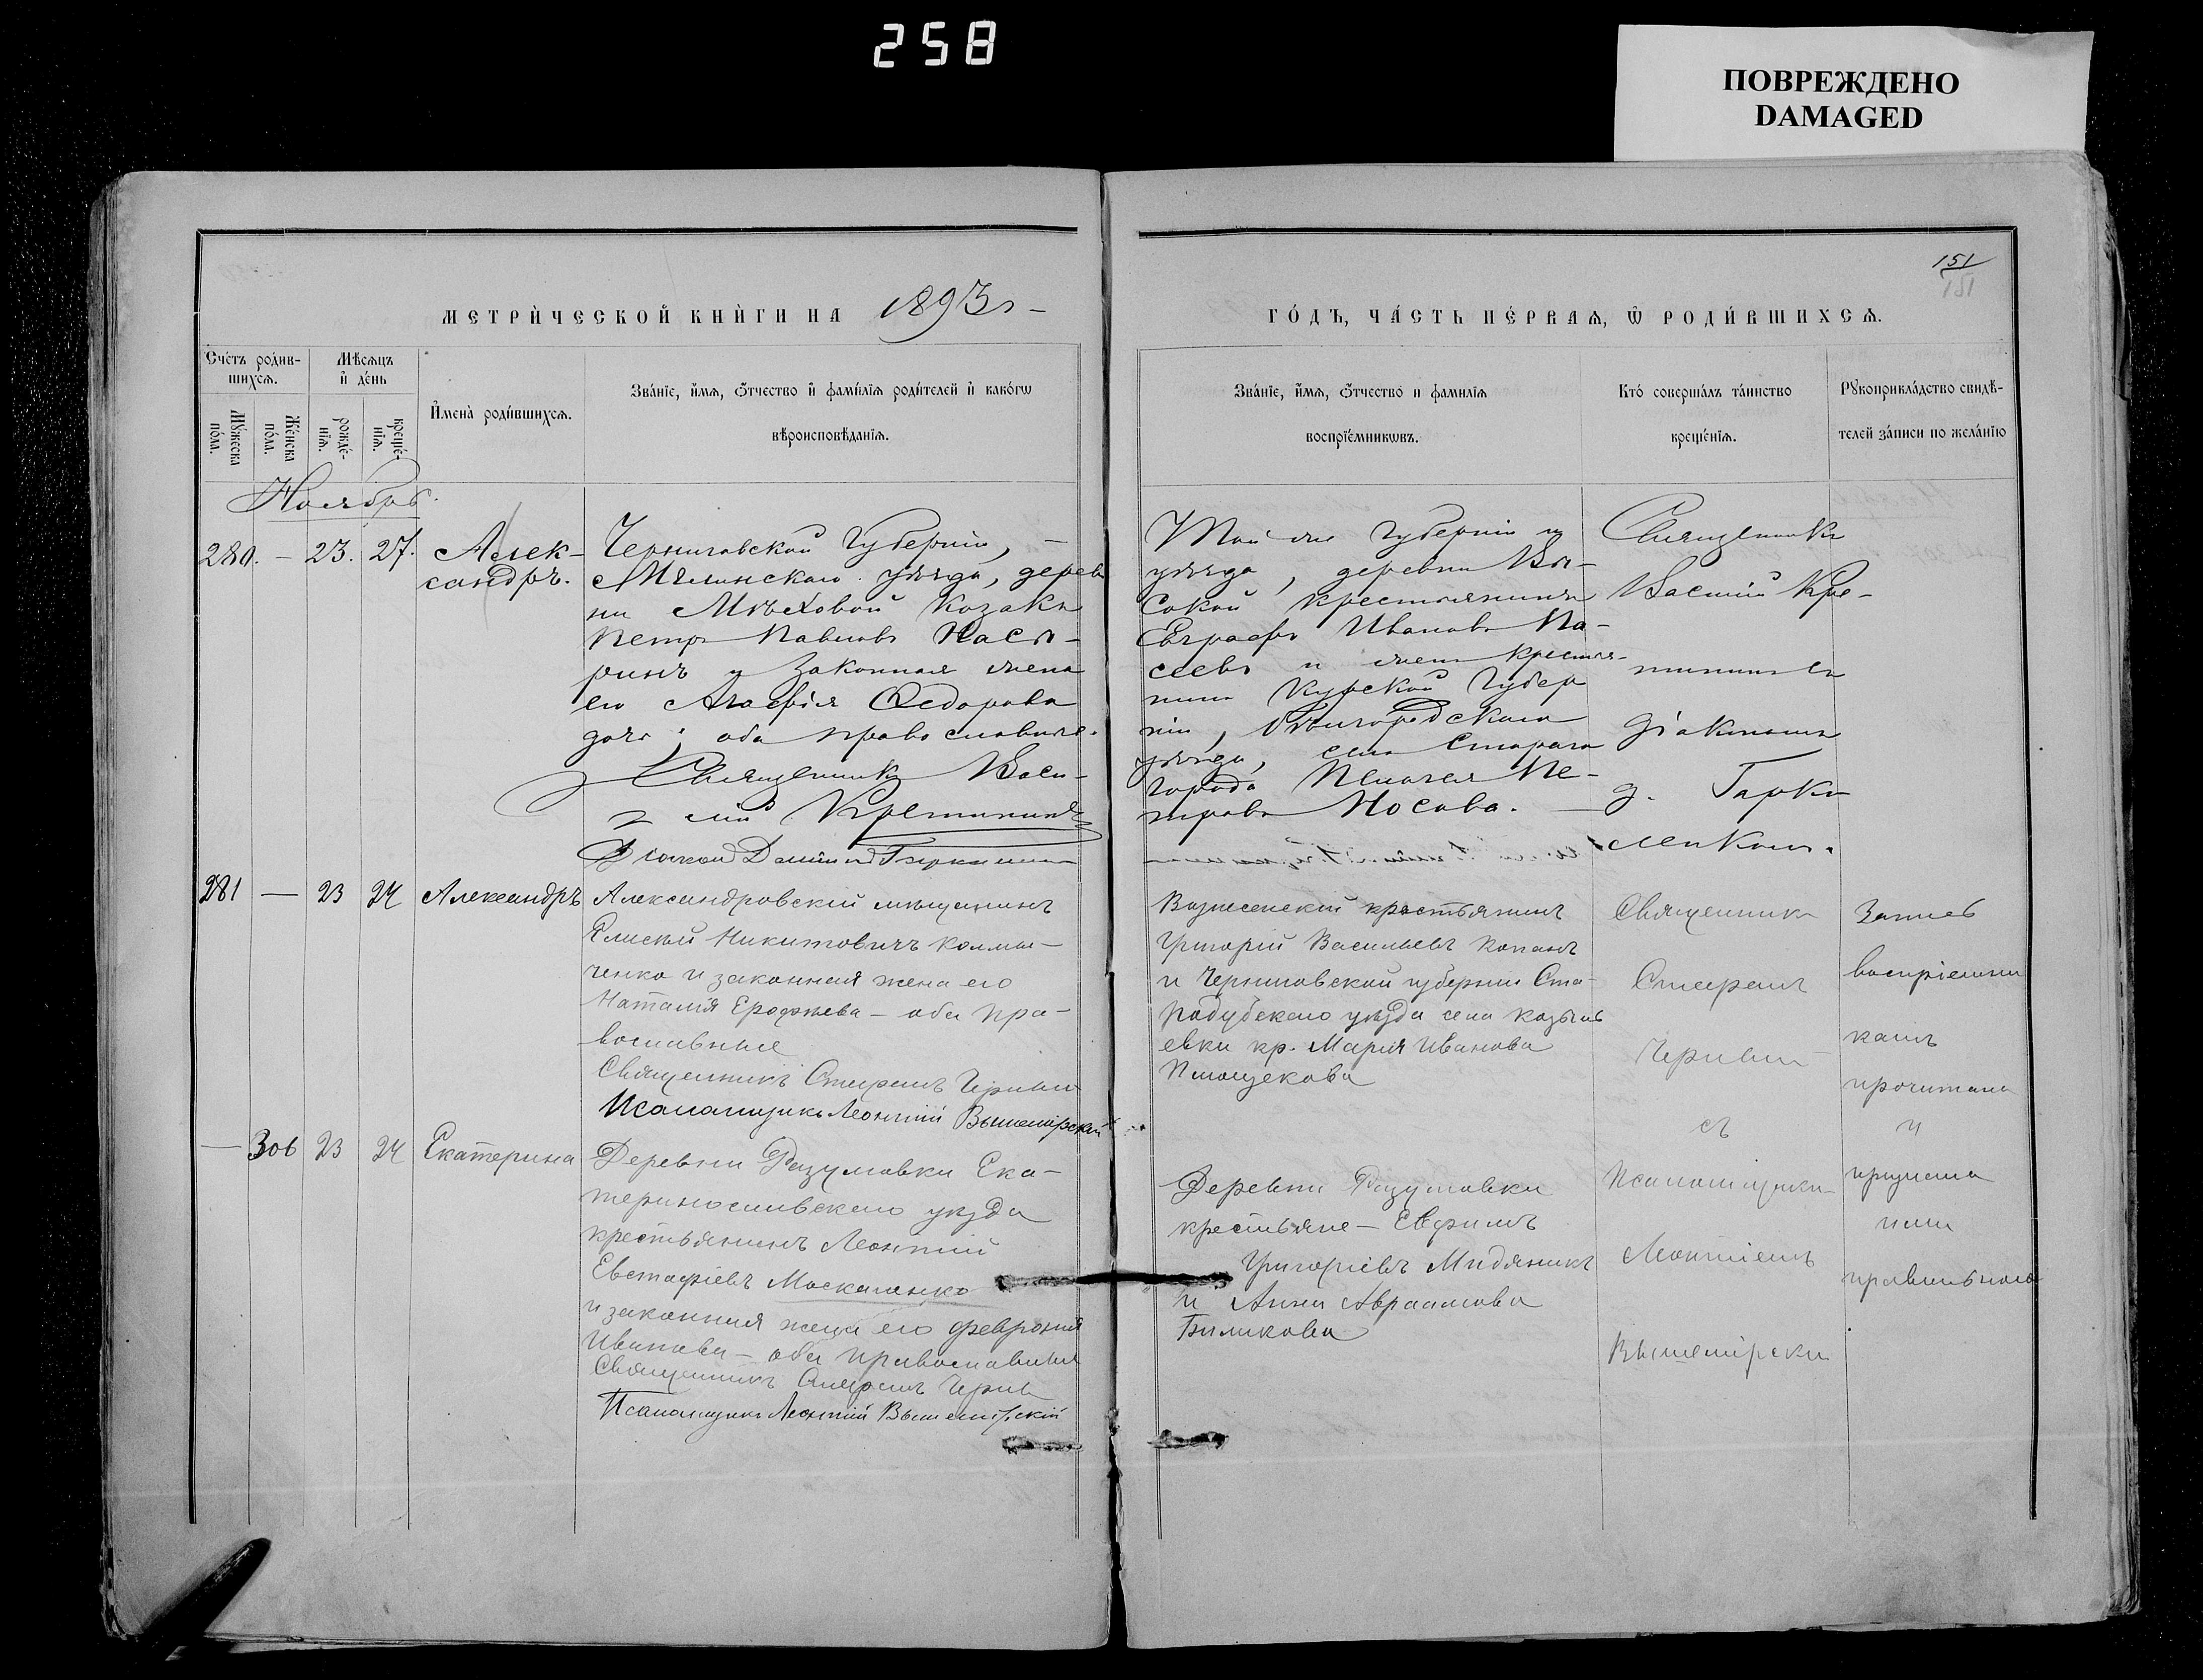 258
ПОВРЕЖДЕНО
DAMAGED
151
151
МЕТРИ́ЧЕСКОЙ КНИ́ГИ НА 1893 г
ГО́ДЪ, ЧА́СТЬ ПЕ́РВАѦ, Ѿ РОДИ́ВШИХСѦ.
Сче́тъ роди́в-
шихсѧ.
Мѣ́сѧцъ
и҆ де́нь
Мꙋ́жеска
по́ла.
Же́нска
по́ла.
рожде́-
нїѧ.
креще́-
нїѧ.
И҆мена̀ роди́вшихсѧ.
Зва́нїе, и҆́мѧ, ѻ҆́тчество и҆ фами́лїѧ роди́телей и҆ како́гѡ
вѣроисповѣ́данїѧ.
Зва́нїе, и҆́мѧ, ѻ҆́тчество и фамилїѧ
воспрїе́мникѡвъ.
Кто́ соверша́лъ та́инство
креще́нїѧ.
Рꙋкоприкла́дство свидѣ́-
телей за́писи по жела́нїю
Ноябрь.
280. — 23. 27. Алек-
сандръ.
Черниговской Губерніи, —
Мглинскаго уѣзда, дерев
ни Мѣховой Козакъ
Петръ Павловъ
и Законная жена
его Агафія Ѳедорова
оба православные.
Священникъ Васи-
лій Кремянинъ
Діаконъ
Той же Губерніи и
уѣзда, деревни Вы-
сокой крестьянинъ
Евграфъ Ивановъ
и жена крестья-
нина Курской Губер
ніи, Бѣлгородскаго
уѣзда, села Стараго
города Пелагея Пе-
трова Носова. —
Священникъ
Василій Кре-
мянинъ съ
діакономъ
Д. Гарку
шенкомъ.
281 — 23 24 Александръ
Александровскій мѣщанинъ
Елисей Никитовичъ Колмы-
ченко и законная жена его
Наталія Ерофѣева — оба пра-
вославные
Священникъ Стефанъ
Псаломщикъ Леонтій Вышемірскій
Вознесенскій крестьянинъ
Григорій Васильевъ Копанъ
и Черниговской губерніи Ста-
родубскаго уѣзда села
евки кр. Марія Иванова
Священникъ
Стефанъ
съ
Псаломщикомъ
Леонтіемъ
Вышемірски
Запись
воспріемни
камъ
прочитана
и
признана
ими
правильною
— 306 23 24 Екатерина
Деревни Разумовки Ека-
теринославскаго уѣзда
крестьянинъ Леонтій
Евстафіевъ Москаленко
и законная жена его Февронія
Иванова — оба православные
Священникъ Стефанъ
Псаломщикъ Леонтій Вышемірскій
Деревни Разумовки
крестьяне — Евфимъ
Григоріевъ Мидяникъ
и Анна Авраамова
Биликова